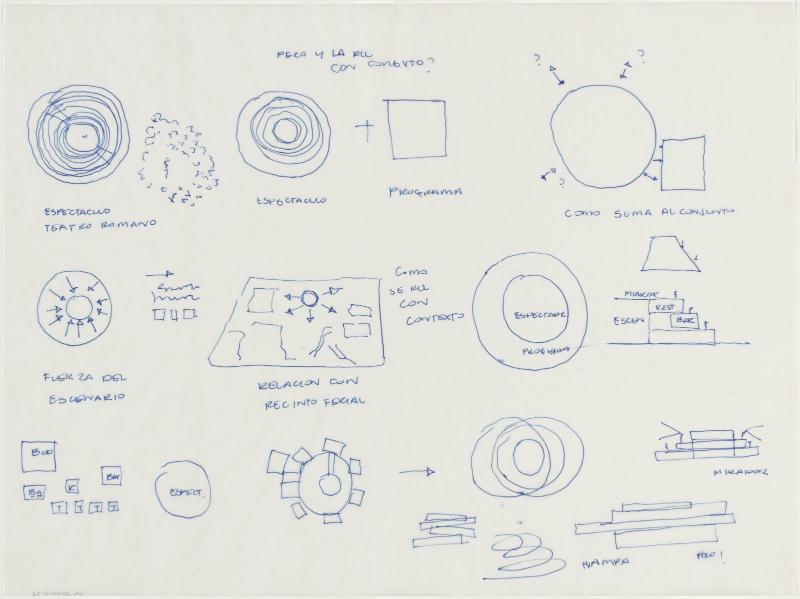 PERO Y LA REL
CON CONEXTO?
?
?
?
ESPECTACULO
TEATRO ROMANO
ESPECTACULO
+
PROGRAMA
COMO SUMA AL CONJUNTO
FUERZA DEL
ESCENARIO
RELACION CON
RECINTO FERIAL
COMO
SE REL
CON
CONTEXTO
ESPECTADOR
PROGRAMA
MIRADOR
REST
BAR
ESCEN
BOD
BAR
K
T T T T
ESPECT.
MIRADOR
PERO!